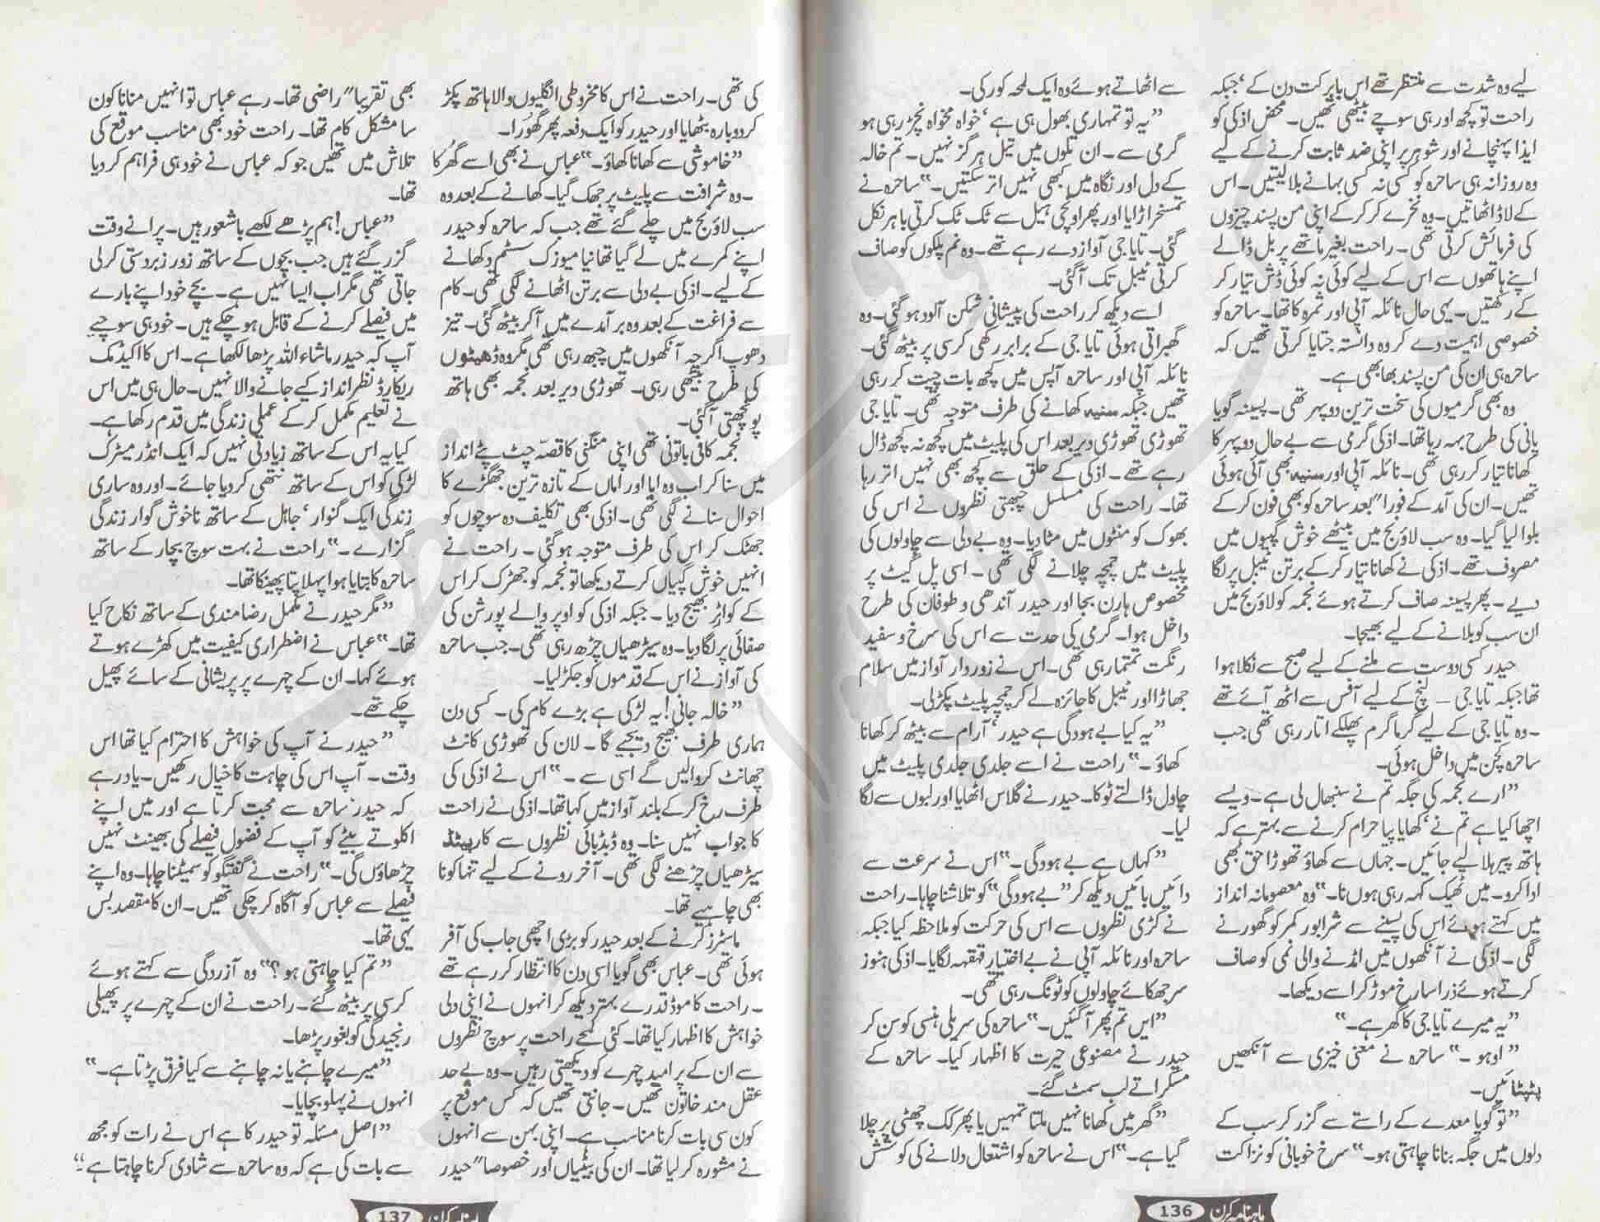 لیے وہ شدت سے منتظر تھے اس بابرکت دن کے‘ جبکہ
راحت تو کچھ اور ہی سوچے بیٹھی تھیں۔ محض اذکیٰ کو
ایذا پہنچانے اور شوہر پر اپنی ضد ثابت کرنے کے لیے
وہ روزانہ ہی ساحرہ کو کسی نہ کسی بہانے بلا لیتیں۔ اس
کے لاڈ اٹھاتیں۔ وہ نخرے کر کر کے اپنی من پسند چیزوں
کی فرمائش کرتی تھی۔ راحت بغیر ماتھے پر بل ڈالے
اپنے ہاتھوں سے اس کے لیے کوئی نہ کوئی ڈش تیار کر
کے رکھتیں۔ یہی حال نائلہ آپی اور ثمرہ کا تھا۔ ساحرہ کو
خصوصی اہمیت دے کر وہ دانستہ جتایا کرتی تھیں کہ
ساحرہ ہی ان کی من پسند بھابھی ہے۔
وہ بھی گرمیوں کی سخت ترین دوپہر تھی۔ پسینہ گویا
پانی کی طرح بہہ رہا تھا۔ اذکیٰ گرمی سے بے حال دوپہر کا
کھانا تیار کر رہی تھی۔ نائلہ آپی اور سنیہ بھی آئی ہوئی
تھیں۔ ان کی آمد کے فورا" بعد ساحرہ کو بھی فون کر کے
بلوا لیا گیا۔ وہ سب لاؤنج میں بیٹھے خوش گپیوں میں
مصروف تھے۔ اذکیٰ نے کھانا تیار کر کے برتن ٹیبل پر لگا
دیے۔ پھر پسینہ صاف کرتے ہوئے نجمہ کو لاؤنج میں
ان سب کو بلانے کے لیے بھیجا۔
حیدر کسی دوست سے ملنے کے لیے صبح سے نکلا ہوا
تھا جبکہ تایا جی۔ لنچ کے لیے آفس سے اٹھ آئے تھے
۔ وہ تایا جی کے لیے گرما گرم پھلکے اتار رہی تھی جب
ساحرہ کچن میں داخل ہوئی۔
”ارے نجمہ کی جگہ تم نے سنبھال لی ہے۔ ویسے
اچھا کیا ہے تم نے‘ کھایا پیا حرام کرنے سے بہتر ہے کہ
ہاتھ پیر ہلا لیے جائیں۔ جہاں سے کھاؤ تھوڑا حق بھی
ادا کرو۔ میں ٹھیک کہہ رہی ہوں نا۔“ وہ معصومانہ انداز
میں کہتے ہوئے اس کی پسینے سے شرابور کمر کو گھورنے
لگی۔ اذکیٰ نے آنکھوں میں امڈنے والی نمی کو صاف
کرتے ہوئے ذرا سا رخ موڑ کر اسے دیکھا۔
”یہ میرے تایا جی کا گھر ہے۔“
”اوہو۔“ ساحرہ نے معنی خیزی سے آنکھیں
پٹپٹائیں۔
”تو گویا معدے کے راستے سے گزر کر سب کے
دلوں میں جگہ بنانا چاہتی ہو۔“ سرخ خوبانی کو نزاکت
سے اٹھاتے ہوئے وہ ایک لمحہ کو رکی۔
”یہ تو تمہاری بھول ہی ہے‘ خواہ مخواہ نچڑ رہی ہو
گرمی سے۔ ان تلوں میں تیل ہرگز نہیں۔ تم خالہ
کے دل اور نگاہ میں کبھی نہیں اتر سکتیں۔“ ساحرہ نے
تمسخر اڑایا اور پھر اونچی ہیل سے ٹک ٹک کرتی باہر نکل
گئی۔ تایا جی آواز دے رہے تھے۔ وہ نم پلکوں کو صاف
کرتی ٹیبل تک آگئی۔
اسے دیکھ کر راحت کی پیشانی شکن آلود ہوگئی۔ وہ
گھبراتی ہوئی تایا جی کے برابر رکھی کرسی پر بیٹھ گئی۔
نائلہ آپی اور ساحرہ آپس میں کچھ بات چیت کر رہی
تھیں جبکہ سنیہ کھانے کی طرف متوجہ تھی۔ تایا جی
تھوڑی تھوڑی دیر بعد اس کی پلیٹ میں کچھ نہ کچھ ڈال
رہے تھے۔ اذکیٰ کے حلق سے کچھ بھی نہیں اتر رہا
تھا۔ راحت کی مسلسل چبھتی نظروں نے اس کی
بھوک کو منٹوں میں مٹا دیا۔ وہ بے دلی سے چاولوں کی
پلیٹ میں چمچہ چلانے لگی تھی۔ اسی پل گیٹ پر
مخصوص ہارن بجا اور حیدر آندھی و طوفان کی طرح
داخل ہوا۔ گرمی کی حدت سے اس کی سرخ و سفید
رنگت تمتما رہی تھی۔ اس نے زوردار آواز میں سلام
جھاڑا اور ٹیبل کا جائزہ لے کر چمچہ پلیٹ پکڑ لی۔
”یہ کیا بے ہودگی ہے حیدر‘ آرام سے بیٹھ کر کھانا
کھاؤ۔“ راحت نے اسے جلدی جلدی پلیٹ میں
چاول ڈالتے ٹوکا۔ حیدر نے گلاس اٹھایا اور لبوں سے لگا
لیا۔
”کہاں ہے بے ہودگی۔“ اس نے سرعت سے
دائیں بائیں دیکھ کر ”بے ہودگی“ کو تلاشنا چاہا۔ راحت
نے کڑی نظروں سے اس کی حرکت کو ملاحظہ کیا جبکہ
ساحرہ اور نائلہ آپی نے بے اختیار قہقہہ لگایا۔ اذکیٰ ہنوز
سر جھکائے چاولوں کو ٹونگ رہی تھی۔
”ایں تم پھر آگئیں۔“ ساحرہ کی سریلی ہنسی کو سن کر
حیدر نے مصنوعی حیرت کا اظہار کیا۔ ساحرہ کے
مسکراتے لب سمٹ گئے۔
”گھر میں کھانا نہیں ملتا تمہیں یا پھر کک چھٹی پر چلا
گیا ہے۔“ اس نے ساحرہ کو اشتعال دلانے کی کوشش
ماہنامہ کرن 136
کی تھی۔ راحت نے اس کا مخروطی انگلیوں والا ہاتھ پکڑ
کر دوبارہ بٹھایا اور حیدر کو ایک دفعہ پھر گھورا۔
”خاموشی سے کھانا کھاؤ۔“ عباس نے بھی اسے گھرکا
۔ وہ شرافت سے پلیٹ پر جھک گیا۔ کھانے کے بعد وہ
سب لاؤنج میں چلے گئے تھے جب کہ ساحرہ کو حیدر
اپنے کمرے میں لے گیا تھا نیا میوزک سسٹم دکھانے
کے لیے۔ اذکیٰ بے دلی سے برتن اٹھانے لگی تھی۔ کام
سے فراغت کے بعد وہ برآمدے میں آکر بیٹھ گئی۔ تیز
دھوپ اگرچہ آنکھوں میں چبھ رہی تھی مگر وہ ڈھیٹوں
کی طرح بیٹھی رہی۔ تھوڑی دیر بعد نجمہ بھی ہاتھ
پونچھتی آگئی۔
نجمہ کافی باتونی تھی اپنی منگنی کا قصہ چٹ پٹے انداز
میں سنا کر اب وہ ابا اور اماں کے تازہ ترین جھگڑے کا
احوال سنانے لگی تھی۔ اذکیٰ بھی تکلیف دہ سوچوں کو
جھٹک کر اس کی طرف متوجہ ہوگئی۔ راحت نے
انہیں خوش گپیاں کرتے دیکھا تو نجمہ کو جھڑک کر اس
کے کوارٹر بھیج دیا۔ جبکہ اذکیٰ کو اوپر والے پورشن کی
صفائی پر لگا دیا۔ وہ سیڑھیاں چڑھ رہی تھی۔ جب ساحرہ
کی آواز نے اس کے قدموں کو جکڑ لیا۔
”خالہ جانی! یہ لڑکی ہے بڑے کام کی۔ کسی دن
ہماری طرف بھیج دیجیے گا۔ لان کی تھوڑی کانٹ
چھانٹ کروالیں گے اسی سے۔“ اس نے اذکیٰ کی
طرف رخ کر کے بلند آواز میں کہا تھا۔ اذکیٰ نے راحت
کا جواب نہیں سنا۔ وہ ڈبڈبائی نظروں سے کارپیٹڈ
سیڑھیاں چڑھنے لگی تھی۔ آخر رونے کے لیے تنہا کونا
بھی چاہیے تھا۔
ماسٹرز کرنے کے بعد حیدر کو بڑی اچھی جاب کی آفر
ہوئی تھی۔ عباس بھی گویا اسی دن کا انتظار کر رہے تھے
۔ راحت کا موڈ قدرے بہتر دیکھ کر انہوں نے اپنی دلی
خواہش کا اظہار کیا تھا۔ کئی لمحے راحت پر سوچ نظروں
سے ان کے پرامید چہرے کو دیکھتی رہیں۔ وہ بے حد
عقل مند خاتون تھیں۔ جانتی تھیں کہ کس موقع پر
کون سی بات کرنا مناسب ہے۔ اپنی بہن سے انہوں
نے مشورہ کر لیا تھا۔ ان کی بیٹیاں اور خصوصا" حیدر
بھی تقریبا" راضی تھا۔ رہے عباس تو انہیں منانا کون
سا مشکل کام تھا۔ راحت خود بھی مناسب موقع کی
تلاش میں تھیں جو کہ عباس نے خود ہی فراہم کر دیا
تھا۔
”عباس! ہم پڑھے لکھے باشعور ہیں۔ پرانے وقت
گزر گئے ہیں جب بچوں کے ساتھ زور زبردستی کرلی
جاتی تھی مگر اب ایسا نہیں ہے۔ بچے خود اپنے بارے
میں فیصلے کرنے کے قابل ہو چکے ہیں۔ خود ہی سوچیے
آپ کہ حیدر ماشاء اللہ پڑھا لکھا ہے۔ اس کا اکیڈمک
ریکارڈ نظر انداز کیے جانے والا نہیں۔ حال ہی میں اس
نے تعلیم مکمل کر کے عملی زندگی میں قدم رکھا ہے۔
کیا یہ اس کے ساتھ زیادتی نہیں کہ ایک انڈر میٹرک
لڑکی کو اس کے ساتھ نتھی کر دیا جائے۔ اور وہ ساری
زندگی ایک گنوار‘ جاہل کے ساتھ ناخوش گوار زندگی
گزارے۔“ راحت نے بہت سوچ بچار کے ساتھ
ساحرہ کا بتایا ہوا پہلا پتا پھینکا تھا۔
”مگر حیدر نے مکمل رضامندی کے ساتھ نکاح کیا
تھا۔“ عباس نے اضطراری کیفیت میں کھڑے ہوتے
ہوئے کہا۔ ان کے چہرے پر پریشانی کے سائے پھیل
چکے تھے۔
”حیدر نے آپ کی خواہش کا احترام کیا تھا اس
وقت۔ آپ اس کی چاہت کا خیال رکھیں۔ یاد رہے
کہ حیدر ساحرہ سے محبت کرتا ہے اور میں اپنے
اکلوتے بیٹے کو آپ کے فضول فیصلے کی بھینٹ نہیں
چڑھاؤں گی۔“ راحت نے گفتگو کو سمیٹنا چاہا۔ وہ اپنے
فیصلے سے عباس کو آگاہ کر چکی تھیں۔ ان کا مقصد بس
یہی تھا۔
”تم کیا چاہتی ہو؟“ وہ آزردگی سے کہتے ہوئے
کرسی پر بیٹھ گئے۔ راحت نے ان کے چہرے پر پھیلی
رنجیدگی کو بغور پڑھا۔
”میرے چاہنے یا نہ چاہنے سے کیا فرق پڑتا ہے۔“
انہوں نے پہلو بچایا۔
”اصل مسئلہ تو حیدر کا ہے اس نے رات کو مجھ
سے بات کی ہے کہ وہ ساحرہ سے شادی کرنا چاہتا ہے“
ماہنامہ کرن 137